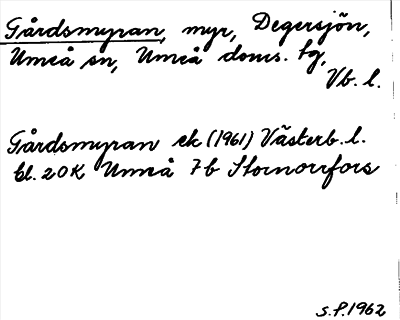 Gårdsmyran, myr, Degersjön,
Umeå sn, Umeå doms. tg,
Vb. l.
Gårdsmyran ek (1961) Västerb. l.
bl. 20K Umeå 7b Stornorrfors
S.P. 1962